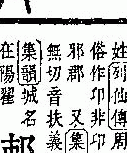 姓列仙傳周
俗作卭非卭
邪郡 又集
無切音扶義
集韻城名
在陽翟